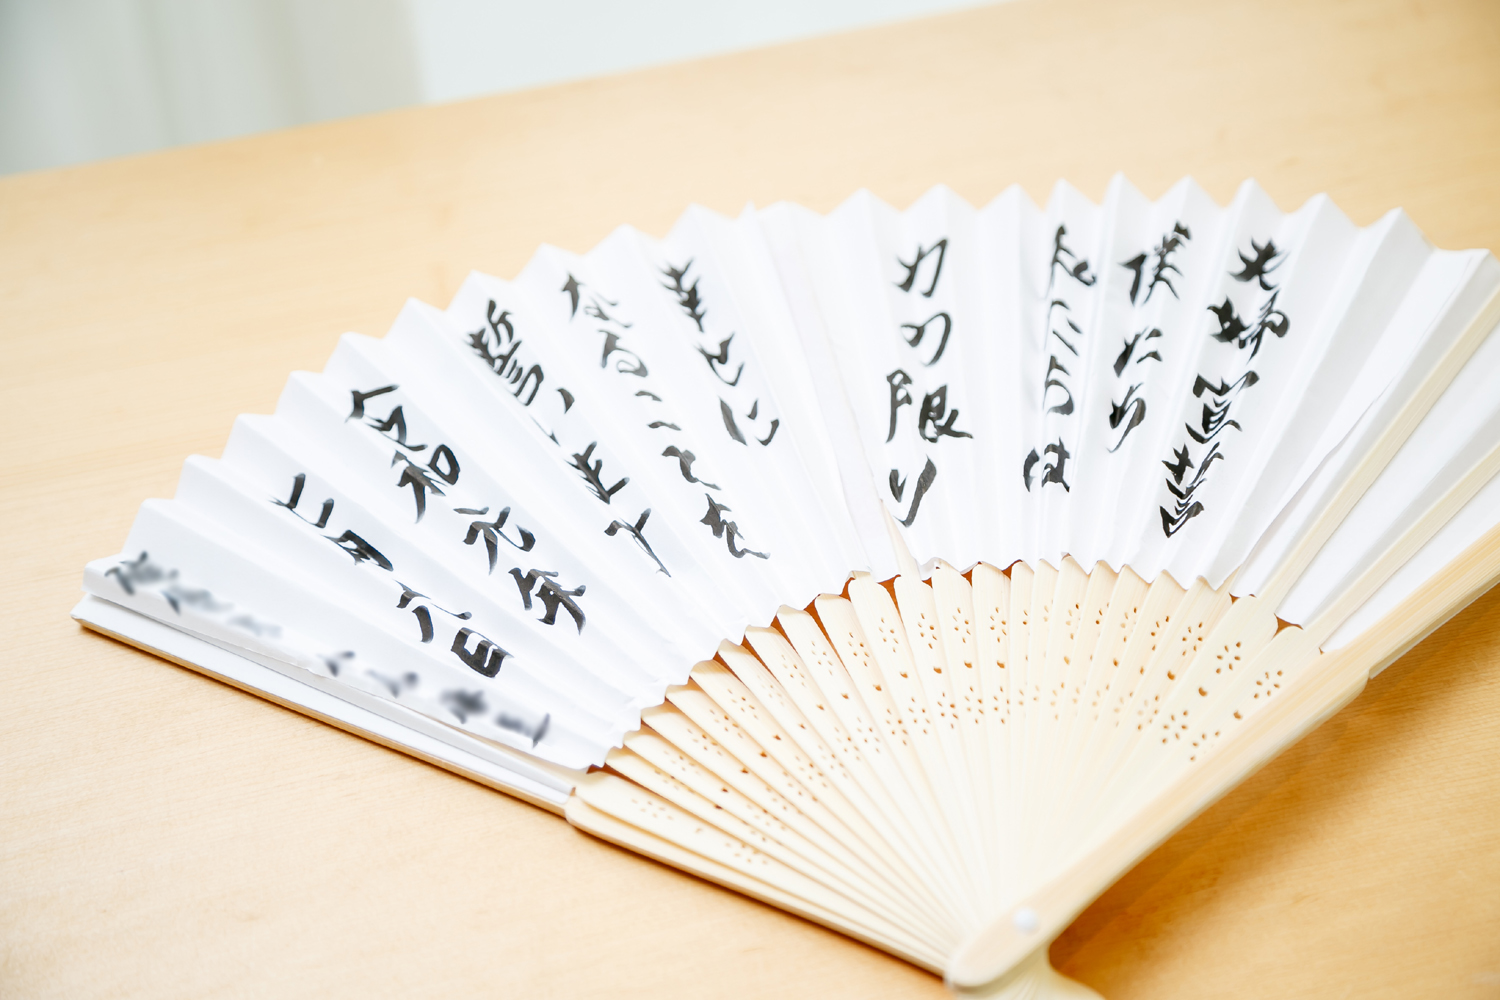 夫婦宣誓
僕たち
たちは
力の限り
幸せに
なることを
誓います
令和元年
二月六日